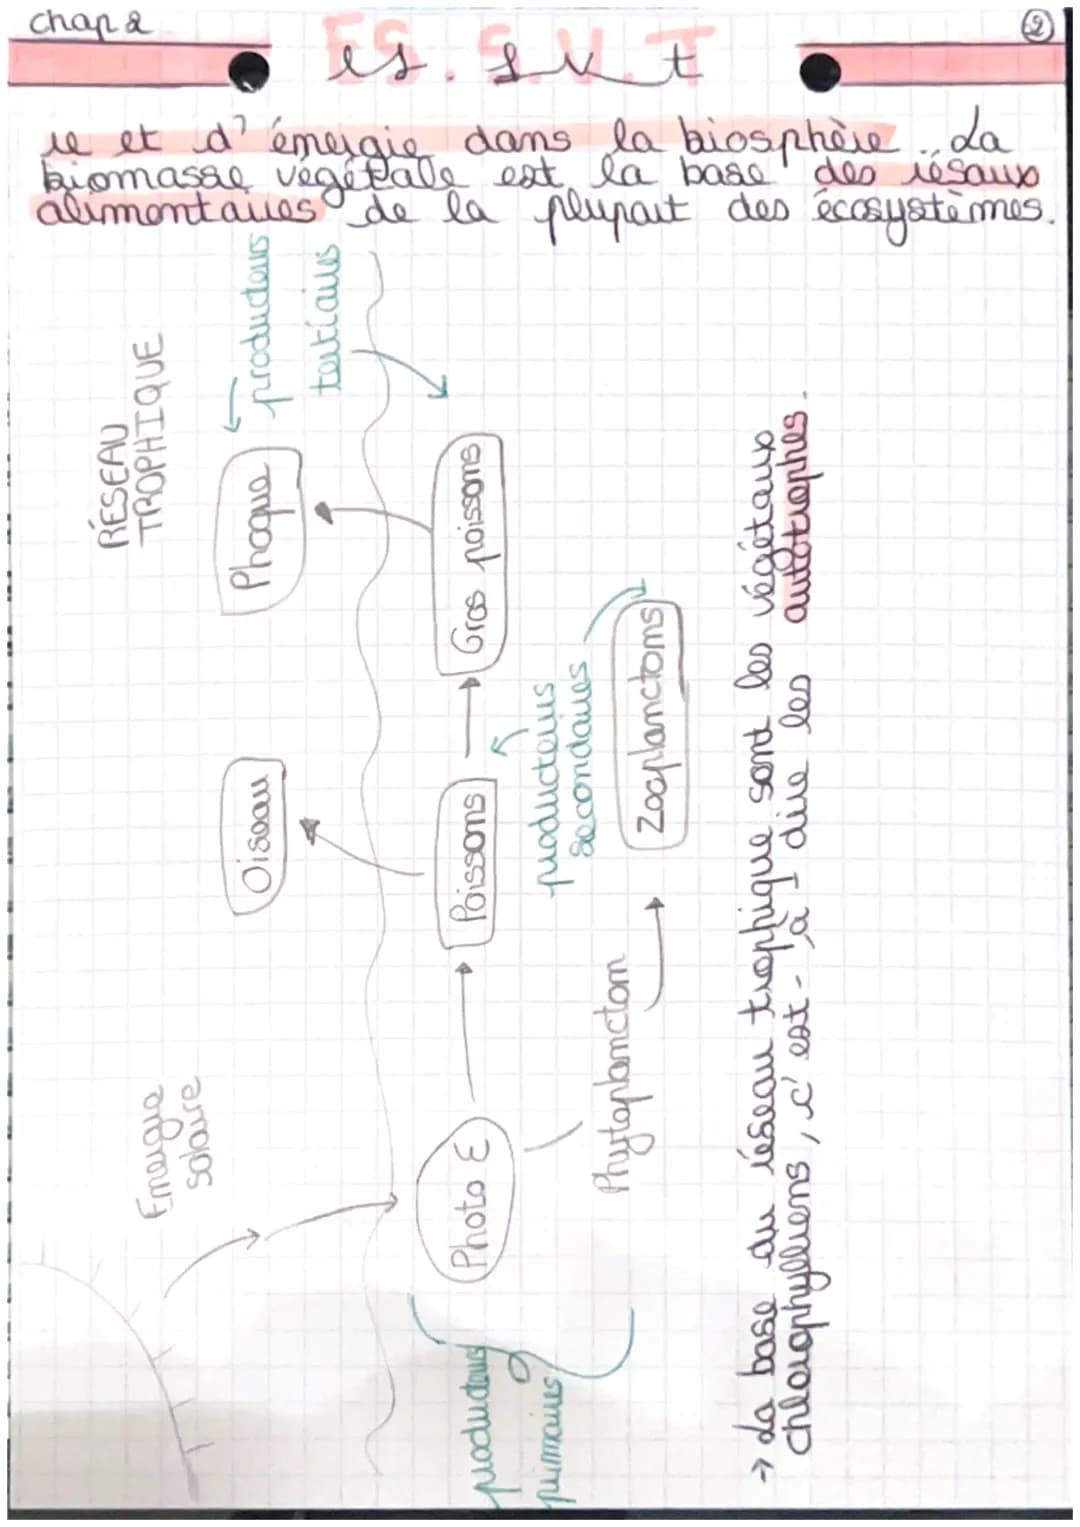 chap 2
ES. S.V.T
es. svt
2
re et d'énergie dans la biosphère. La
biomasse végétale est la base des réseaux
alimentaires de la plupart des écosystèmes.
RÉSEAU
TROPHIQUE
Energie
solaire
Oiseau
Phoque
producteurs
tertiaires
Photo E
Poissons
Gros poissons
producteurs
primaires
producteurs
secondaires
Phytoplancton
Zooplanctons
→ La base du réseau trophique sont les végétaux
chlorophylliens, c'est-à dire les autotrophes.